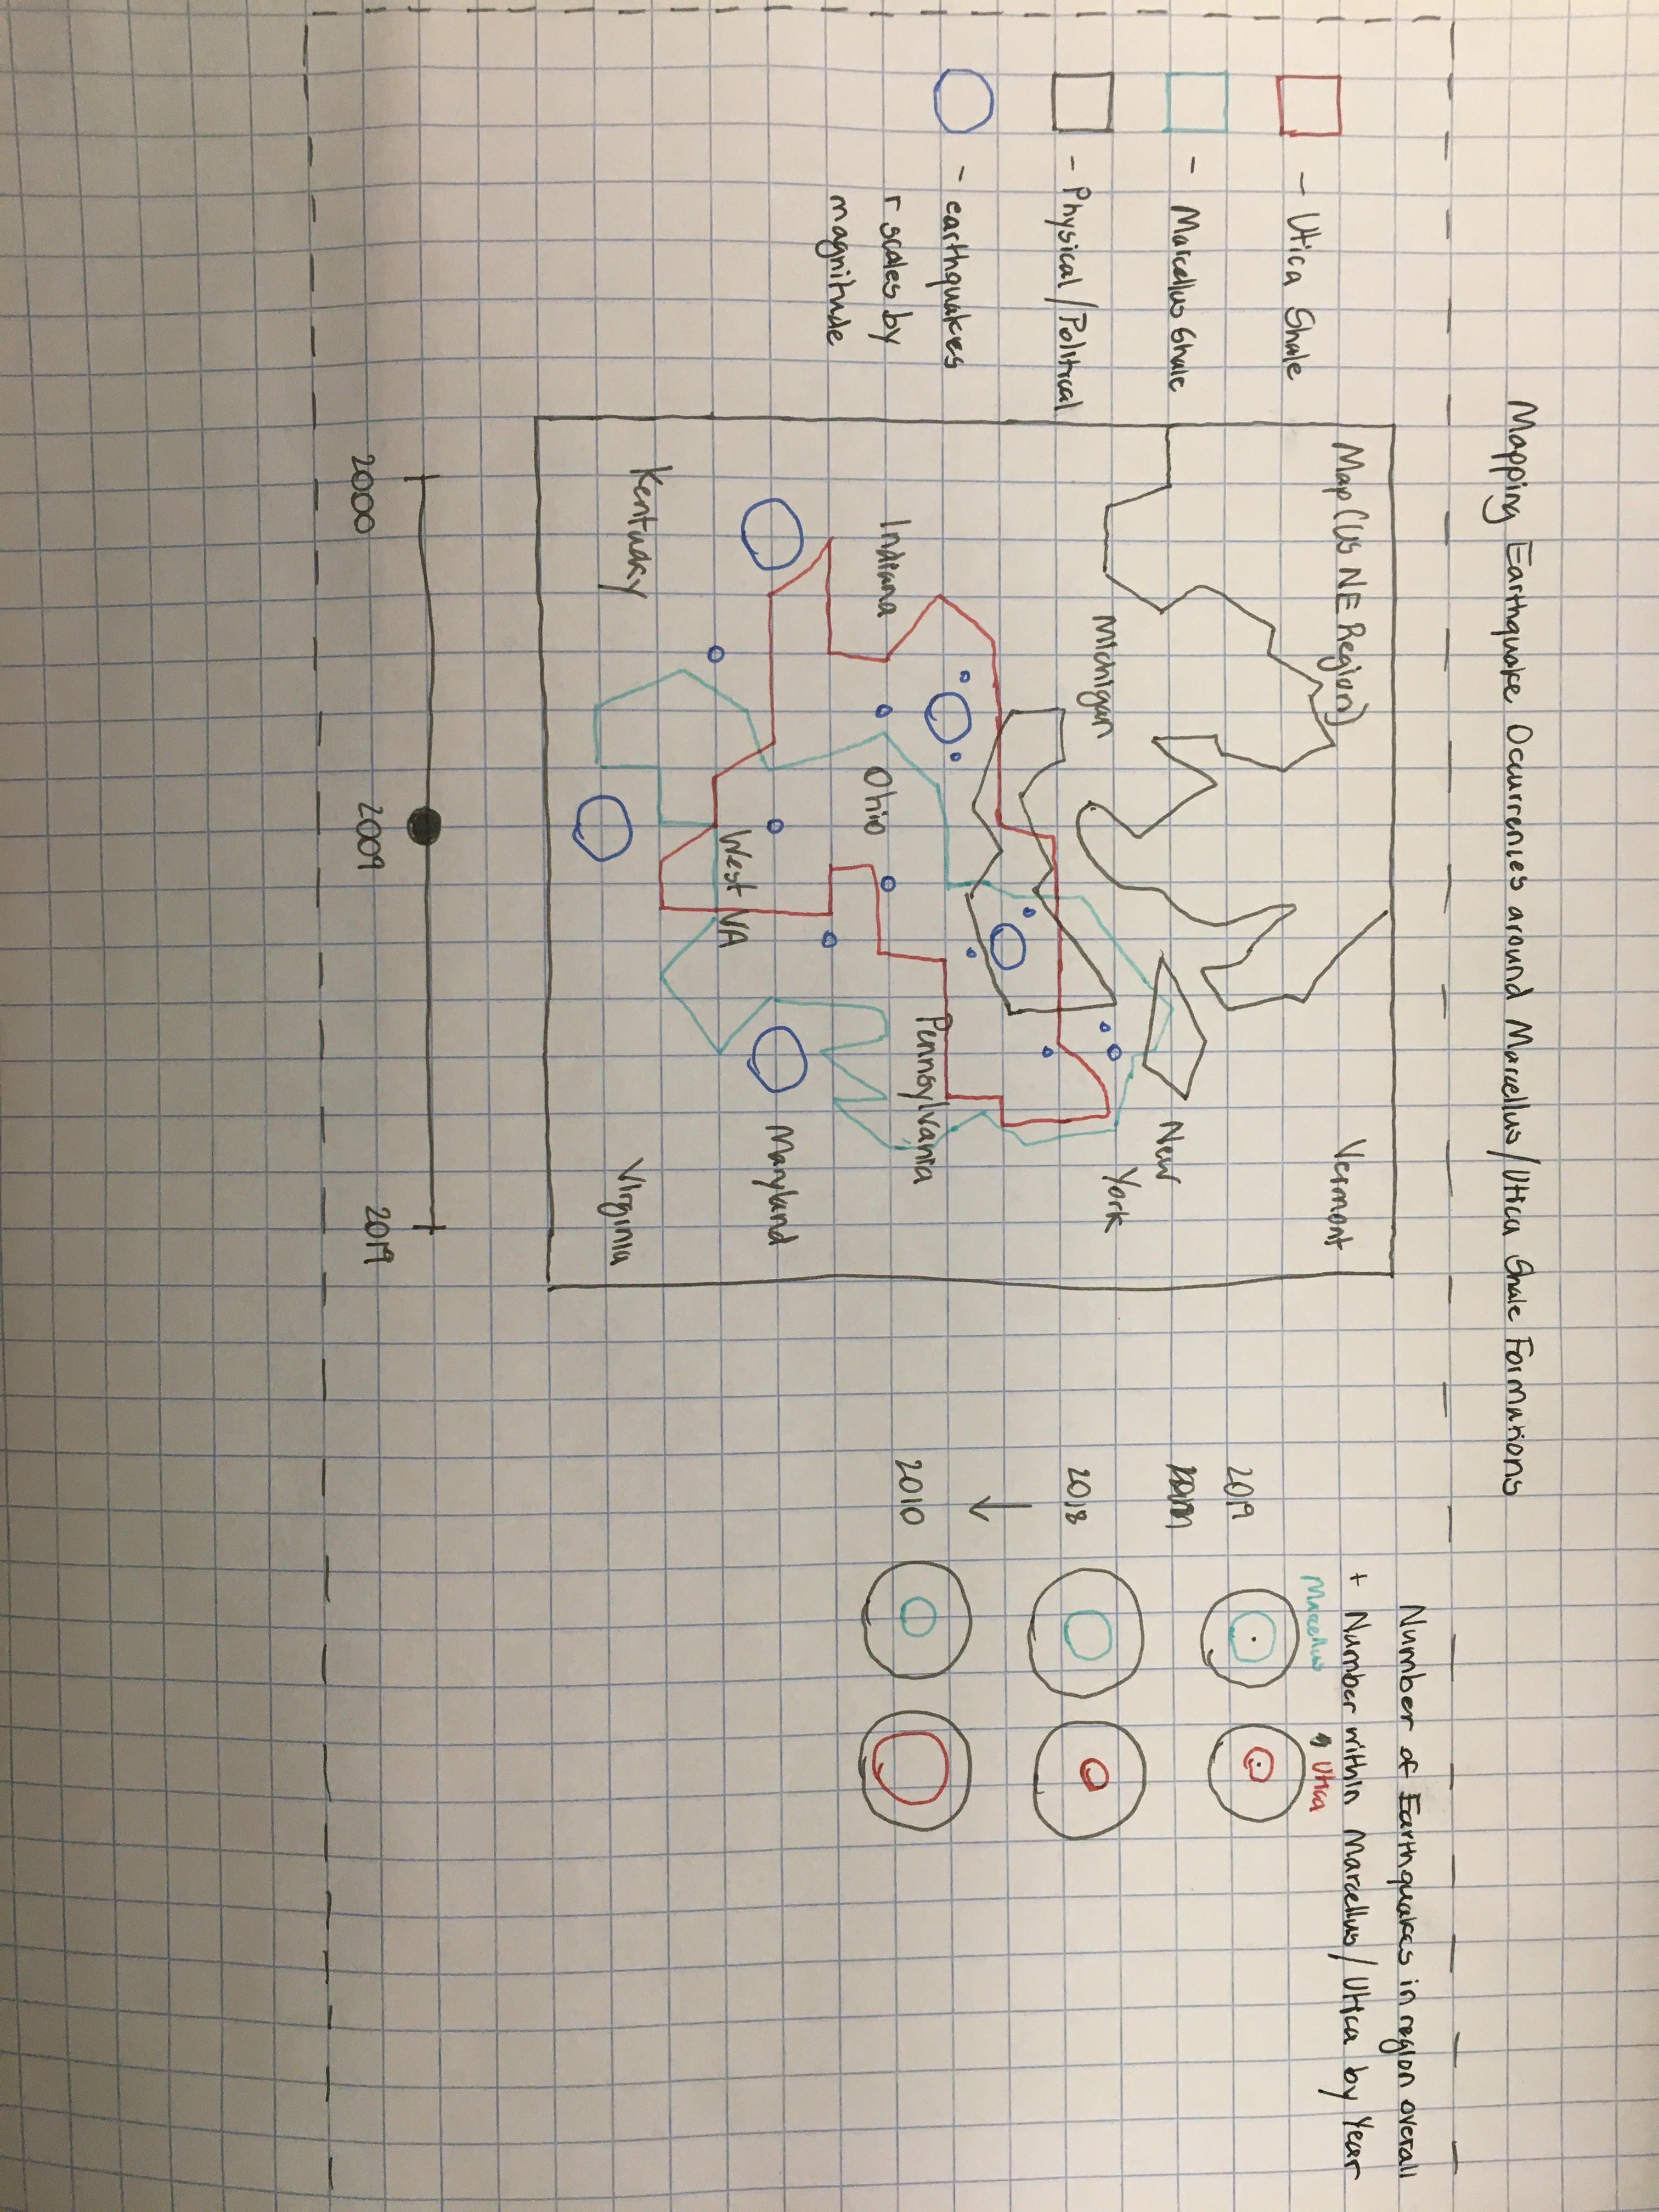 Mapping Earthquake Occurrences around Marcellus/Utica Shale Formations
- Utica Shale
- Marcellus Shale
- Physical/Political
- earthquakes
r scales by
magnitude
Map (US NE Region)
Vermont
Michigan
New
York
Indiana
Ohio
Pennsylvania
West VA
Maryland
Kentucky
Virginia
2000
2009
2019
Number of Earthquakes in region overall
+ Number within Marcellus/Utica by Year
Marcellus
Utica
2019
2018
2010